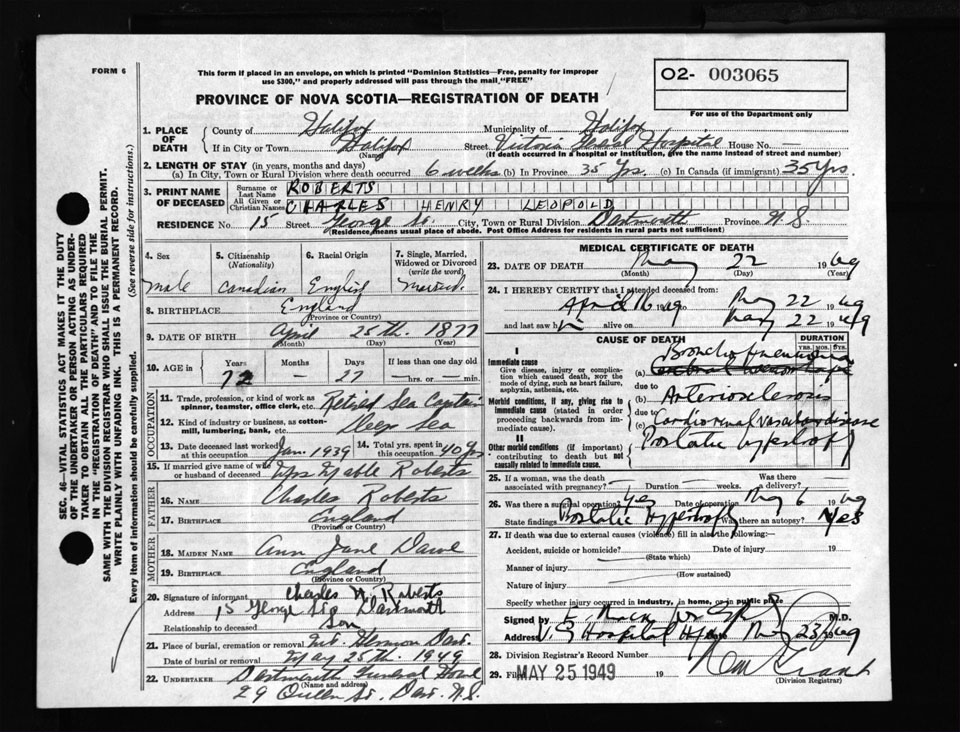 FORM 6
This form if placed in an envelope, on which is printed "Dominion Statistics—Free, penalty for improper
use $300," and properly addressed will pass through the mail, "FREE"
O2- 003065
For use of the Department only
PROVINCE OF NOVA SCOTIA—REGISTRATION OF DEATH
1. PLACE OF DEATH { County of Halifax Municipality of Halifax
If in City or Town Halifax Street Victoria General Hospital House No. —
(Name) (If death occurred in a hospital or institution, give the name instead of street and number)
2. LENGTH OF STAY (in years, months and days)
(a) In City, Town or Rural Division where death occurred 6 weeks (b) In Province 35 Yrs. (c) In Canada (if immigrant) 35 Yrs.
3. PRINT NAME OF DECEASED { Surname or Last Name ROBERTS
All Given or Christian Names CHARLES HENRY LEOPOLD
RESIDENCE No. 15 Street George St. City, Town or Rural Division Dartmouth Province N.S
(Residence means usual place of abode. Post Office Address for residents in rural parts not sufficient)
SEC. 46—VITAL STATISTICS ACT MAKES IT THE DUTY
OF THE UNDERTAKER OR PERSON ACTING AS UNDER-
TAKER TO OBTAIN ALL THE PARTICULARS REQUIRED
IN THE "REGISTRATION OF DEATH" AND TO FILE THE
SAME WITH THE DIVISION REGISTRAR WHO SHALL ISSUE THE BURIAL PERMIT.
WRITE PLAINLY WITH UNFADING INK. THIS IS A PERMANENT RECORD.
Every item of information should be carefully supplied. (See reverse side for instructions.)
4. Sex
male
5. Citizenship (Nationality)
Canadian
6. Racial Origin
English
7. Single, Married, Widowed or Divorced (write the word)
Married.
8. BIRTHPLACE England
(Province or Country)
9. DATE OF BIRTH April 25th. 1877
(Month) (Day) (Year)
10. AGE in { Years Months Days If less than one day old
72 27 — hrs. or — min.
OCCUPATION
11. Trade, profession, or kind of work as spinner, teamster, office clerk, etc. Retired Sea Captain
12. Kind of industry or business, as cotton-mill, lumbering, bank, etc. Deep Sea
13. Date deceased last worked at this occupation Jan. 1939
14. Total yrs. spent in this occupation 40 yrs
15. If married give name of wife or husband of deceased Mrs Mable Roberts
FATHER
16. NAME Charles Roberts
17. BIRTHPLACE England
(Province or Country)
MOTHER
18. MAIDEN NAME Ann Jane Dawe
19. BIRTHPLACE England
(Province or Country)
20. Signature of informant Charles W. Roberts
Address 15 George St. Dartmouth
Relationship to deceased Son
21. Place of burial, cremation or removal Mt. Hermon Dart.
Date of burial or removal May 25th. 1949
22. UNDERTAKER Dartmouth Funeral Home
(Name and address)
29 Queen St. Dart. N.S.
MEDICAL CERTIFICATE OF DEATH
23. DATE OF DEATH May 22 1949
(Month) (Day) (Year)
24. I HEREBY CERTIFY that I attended deceased from:
April 16 1949 May 22 1949
and last saw h alive on May 22 1949
CAUSE OF DEATH DURATION
YRS. MOS. DYS.
I
Immediate cause
Give disease, injury or complication which caused death, not the mode of dying, such as heart failure, asphyxia, asthenia, etc.
(a) Broncho pneumonia
due to
Morbid conditions, if any, giving rise to immediate cause (stated in order proceeding backwards from immediate cause).
(b) Arteriosclerosis
due to
(c) Cardiorenal vascular disease
II
Other morbid conditions (if important) contributing to death but not causally related to immediate cause.
Prostatic hypertrophy
25. If a woman, was the death associated with pregnancy? Duration weeks. Was there a delivery?
26. Was there a surgical operation? Yes Date of operation May 6 1949
State findings Prostatic Hypertrophy Was there an autopsy? Yes
27. If death was due to external causes (violence) fill in also the following:—
Accident, suicide or homicide? Date of injury 19
(State which)
Manner of injury
(How sustained)
Nature of injury
Specify whether injury occurred in industry, in home, or in public place
Signed by M.D.
Address V.G Hospital Hfx Date May 23 1949
28. Division Registrar's Record Number
29. Filed MAY 25 1949 19
(Division Registrar)